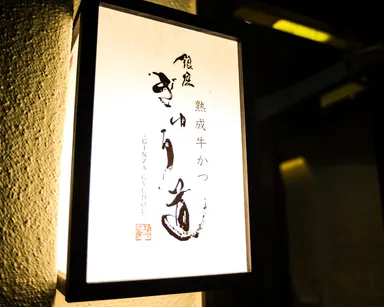 銀座
熟成牛かつ
ぎゅう道
GINZA GYUDOU